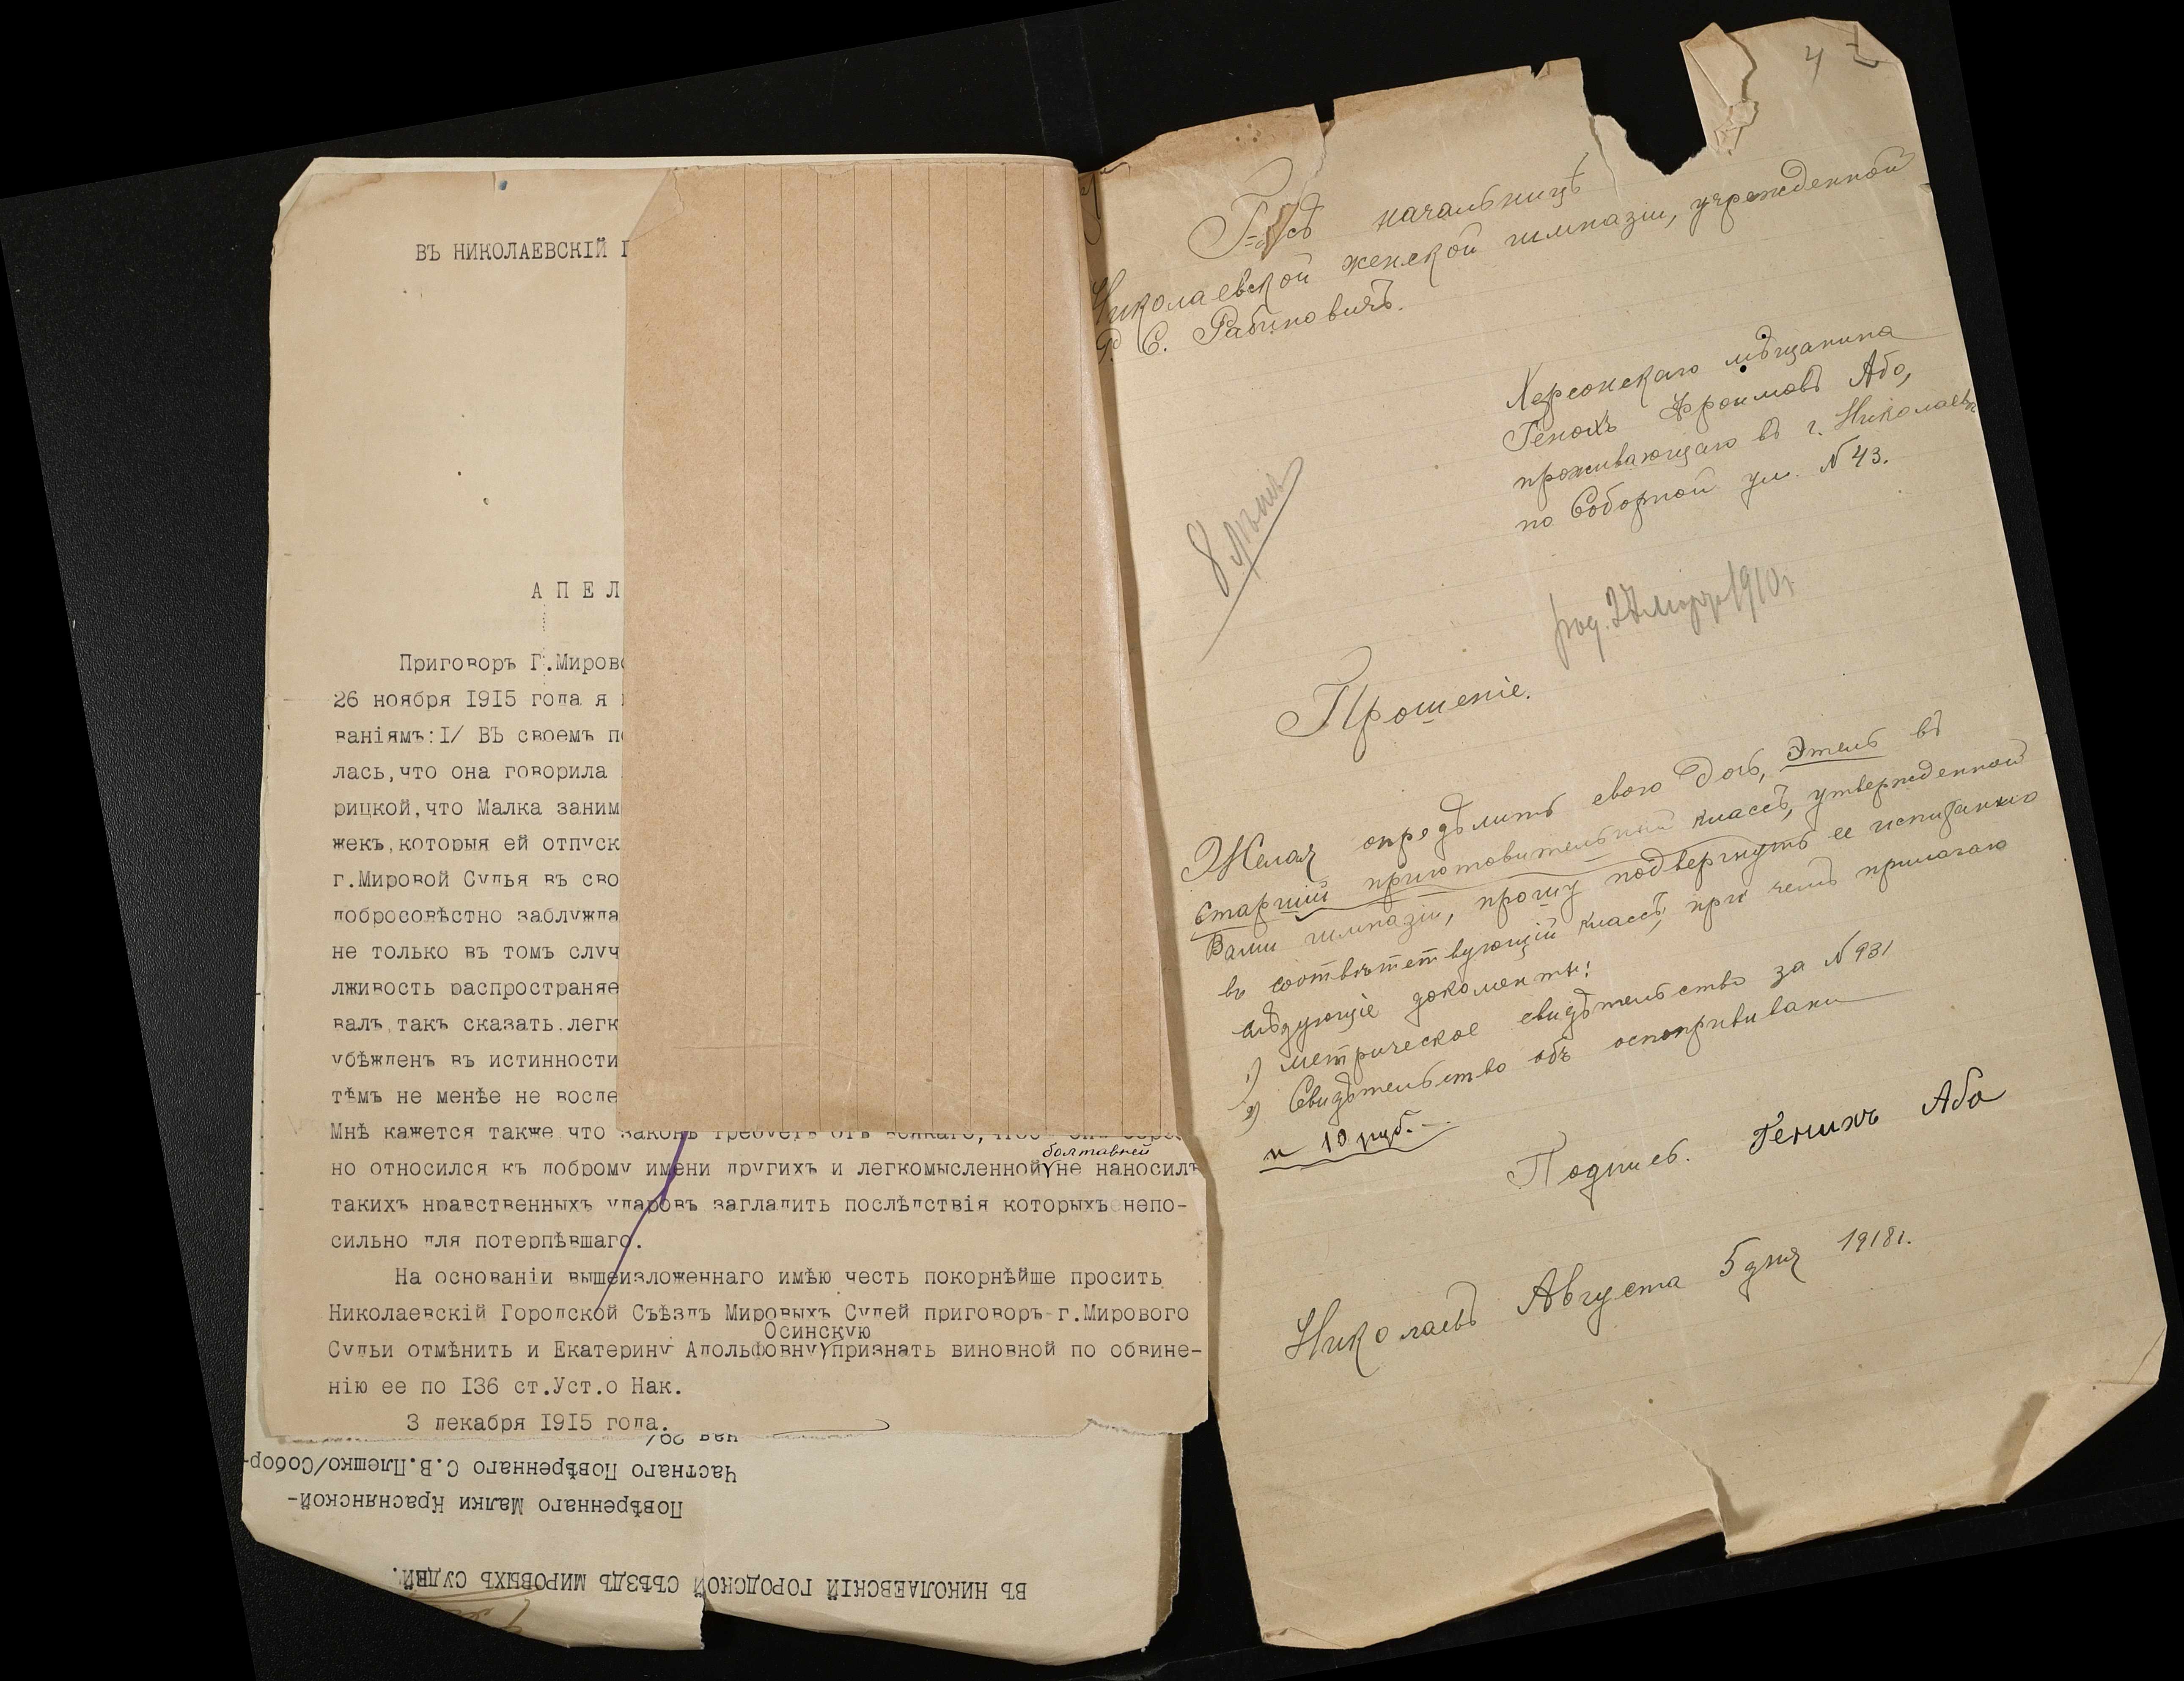 ВЪ НИКОЛАЕВСКІЙ Г
АПЕЛ
Приговоръ Г.Миров
26 ноября 1915 года я
ваніямъ:I/ ВЪ своемъ п
лась,что она говорила
рицкой,что Малка заним
жек,которыя ей отпуск
г.Мировой Судья въ сво
добросовѣстно заблужда
не только въ томъ случ
лживость распространяе
валъ,так сказать,легк
убѣжденъ въ истинности
тѣмъ не менѣе не воспе
Мнѣ кажется также,что законъ требуетъ отъ всякаго,
болтавней
но относился къ доброму имени другихъ и легкомысленной не наносилъ
такихъ нравственныхъ ударовъ загладить послѣдствія которыхъ непо-
сильно для потерпѣвшаго.
На основаніи вышеизложеннаго имѣю честь покорнѣйше просить
Николаевскій Городской Съѣздъ Мировыхъ Судей приговоръ г.Мирового
Осинскую
Судьи отмѣнить и Екатерину Адольфовну признать виновной по обвине-
нію ее по 136 ст.Уст.о Нак.
3 декабря 1915 года.
ВЪ НИКОЛАЕВСКІЙ ГОРОДСКОЙ СЪѢЗДЪ МИРОВЫХЪ СУДЕЙ.
Повѣреннаго Малки Краснянской-
Частнаго Повѣреннаго С.В.Плешко/Собор-
ная 29/
4
начальницѣ
Николаевской женской гимназіи, учрежденной
С. Рабиновичъ.
Херсонскаго мѣщанина
Генохъ Фроимовъ Або,
проживающаго въ г. Николаевѣ
по Соборной ул. N 43.
8 лѣтъ
род. 27 марта 1910 г
Прошеніе.
Желая опредѣлить свою дочь, Этель въ
старшій приготовительный классъ, утвержденной
Вами гимназіи, прошу подвергнуть ее испытанию
въ соотвѣтствующій классъ, при чемъ прилагаю
слѣдующіе документы:
1) метрическое свидѣтельство за N 931
2) Свидѣтельство объ оспопрививани
и 10 руб.
Подпись. Генихъ Або
Николаевъ Августа 5 дня 1918 г.